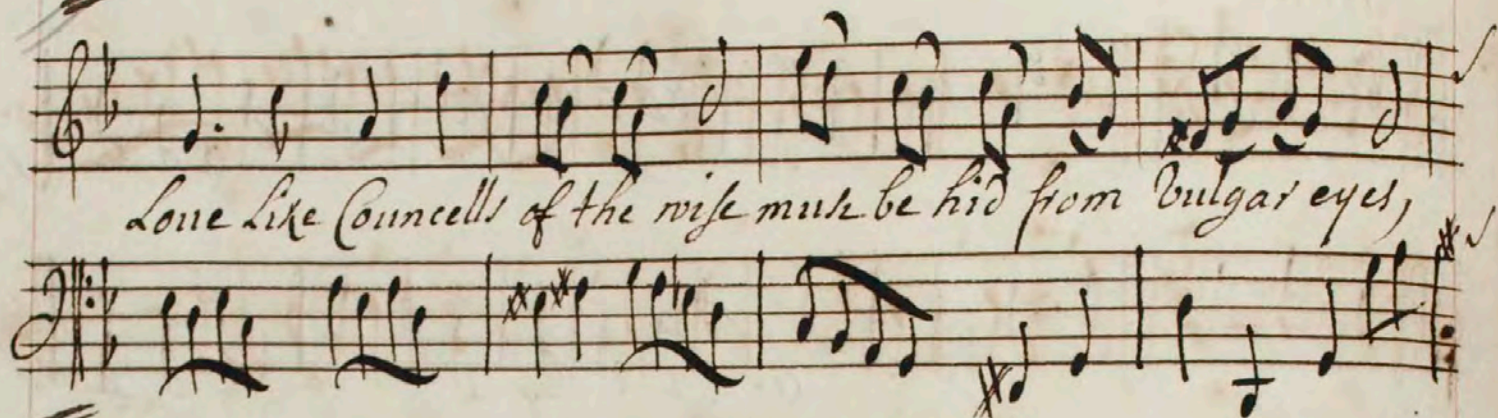 Loue Like Councells of the wise must be hid from Vulgar eyes,